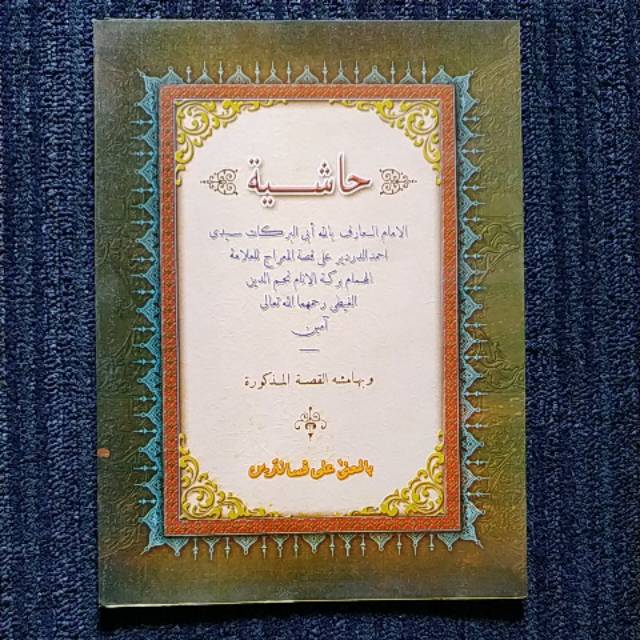 حاشية
الامام العارف بالله أبى البركات سيدي
احمد الدردير على قصة المعراج للعلامة
الهمام بركة الانام نجم الدين
الغيطى رحمهما الله تعالى
آمين
وبهامشه القصة المذكورة
بالمعنى على